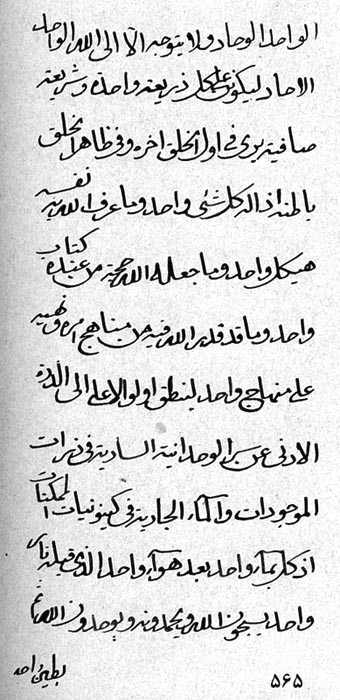 الواحد الوحاد ولا يتوجه الا الى الله الواحد
الاحاد ليكون على كل ذريعة واحدة وشريعة
صافية يرى في اول الخلق اخره وفي ظاهر الخلق
باطنه اذ الكل شئى واحد وما عرف الله به نفسه
هيكل واحد وما جعله الله حجة من عنده كتاب
واحد وما قد قدر الله فيه من مناهج امره ونهيه
على منهاج واحد لينطق اولو الاعلى الى الذرة
الادنى عن سر الوحدانية السارية في ذرات
الموجودات والماء الجارية في كينونيات الممكنات
اذ كل بماء واحد بعد هواء واحد الذي فيه نار
واحد يسبحون الله ويحمدونه ويوحدون الله
۵۶۵